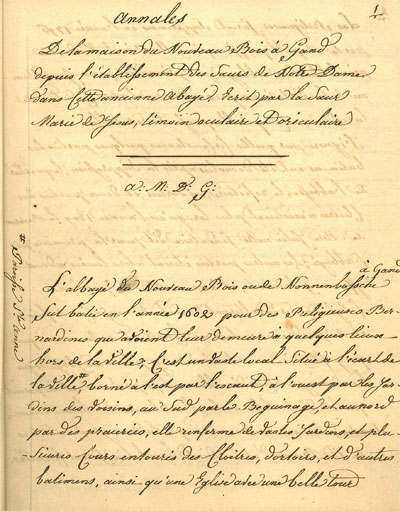 1
Annales
De la maison du Nouveau Bois à Gand
depuis l'établissement des Sœurs de Notre Dame
dans Cette ancienne Abayé, Ecrit par la Sœur
Marie de Jesus, témoin oculaire et Doriculaire
A. M. D. G.
à Gand
L'abbayé du Nouveau Bois ou de Nonnenbossche
fut batie en l'année 1602 pour des Religieuses Ber-
nardines qui avoient leur demeure à quelques lieues
hors de la ville; C'est un vaste local Situé à l'écart de
la ville # borné à l'est par l'escaut, à l'ouest par les Jar-
dins des voisins, au Sud par le Beguinage, et au nord
par des praieries, elle renferme de vastes Jardins, et plu-
sieures Cours entourés des Cloîtres, dortoirs, et d'autres
batimens, ainsi qu'une Eglise avec une belle Tour
# Paroisse Ste anne